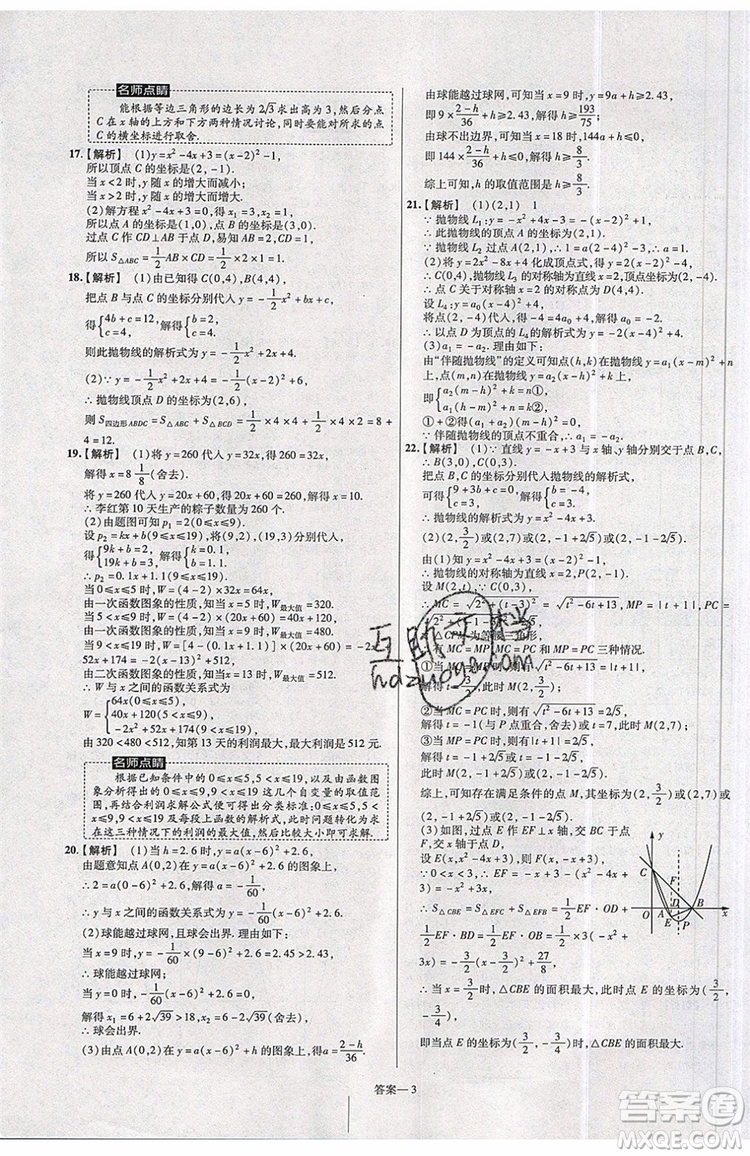 名师点睛
能根据等边三角形的边长为2√3求出高为3,然后分点
C在x轴的上方和下方两种情况讨论,同时要能对所求的点
C的横坐标进行取舍.
17.【解析】 (1)y=x²-4x+3=(x-2)²-1,
所以顶点C的坐标是(2,-1).
当x<2时,y随x的增大而减小;
当x>2时,y随x的增大而增大.
(2)解方程x²-4x+3=0,得x₁=3,x₂=1.
所以点A的坐标是(1,0),点B的坐标是(3,0).
过点C作CD⊥AB于点D,
所以S△ABC=1/2 AB×CD=1/2×2×1=1.
18.【解析】 (1)由已知得C(0,4),B(4,4),
把点B与点C的坐标分别代入y=-1/2x²+bx+c,
得{4b+c=12,c=4,解得{b=2,c=4.
则此抛物线的解析式为y=-1/2x²+2x+4.
(2)∵y=-1/2x²+2x+4=-1/2(x-2)²+6,
∴抛物线顶点D的坐标为(2,6),
则S四边形ABDC=S△ABC+S△BCD=1/2×4×4+1/2×4×2=8+
4=12.
19.【解析】 (1)将y=260代入y=32x,
解得x=8 1/8(舍去).
将y=260代入y=20x+60,解得x=10.
∴李红第10天生产的粽子数量为260个.
(2)由题图可知p₁=2(0≤x≤9).
设p₂=kx+b(9≤x≤19),
∴{9k+b=2,19k+b=3,解得{k=0.1,b=1.1,
∴p₂=0.1x+1.1(9≤x≤19).
当0≤x≤5时,W=(4-2)×32x=64x,
由一次函数图象的性质,知当x=5时,W最大值=320.
当5<x≤9时,W=(4-2)×(20x+60)=40x+120,
由一次函数图象的性质,知当x=9时,W最大值=480.
当9<x≤19时,W=[4-(0.1x+1.1)]×(20x+60)=-2x²+
52x+174=-2(x-13)²+512,
由二次函数图象的性质,知当x=13时,W最大值=512.
∴W与x之间的函数关系式为
W={64x(0≤x≤5),40x+120(5<x≤9),-2x²+52x+174(9<x≤19).
由320<480<512,知第13天的利润最大,最大利润是512元.
名师点睛
根据已知条件中的0≤x≤5,5<x≤19,以及函数图
象分析得出的0≤x≤9,9≤x≤19这几个自变量的取值范
围,再结合利润求解公式便可得出分类标准:0≤x≤5,5<x
≤9,9<x≤19及每段上函数的解析式,此时问题转化为求
出这三种情况下的利润的最大值,然后经过比较求解.
20.【解析】 (1)当h=2.6时,y=a(x-6)²+2.6,
由题意知点A(0,2)在y=a(x-6)²+2.6的图象上,
∴2=a(0-6)²+2.6,解得a=-1/60,
∴y与x之间的函数关系式为y=-1/60(x-6)²+2.6.
(2)球能越过球网,且球会出界.理由如下:
当x=9时,y=-1/60×(9-6)²+2.6=2.45>2.43,
∴球能越过球网.
当y=0时,-1/60(x-6)²+2.6=0,
解得x₁=6+2√39>18,x₂=6-2√39(舍去),
∴球会出界.
(3)由点A(0,2)在y=a(x-6)²+h的图象上,得a=(2-h)/36.
由球能越过球网,可知当x=9时,y=9a+h≥2.43,
即9×(2-h)/36+h≥2.43,解得h≥193/75;
由球不出边界,可知当x=18时,144a+h≤0,
即144×(2-h)/36+h≤0,解得h≥8/3.
综上可知,h的取值范围是h≥8/3.
21.【解析】 (1)(2,1) 1
∵抛物线L₁:y=-x²+4x-3=-(x-2)²+1,
∴此抛物线的顶点坐标为A(2,1).
∵抛物线L₂过点A(2,1),∴1=a(2-1)²,∴a=1.
(2)将y=2x²-8x+4化成顶点式,得y=2(x-2)²-4.
∴C(0,4),抛物线L₃的对称轴为直线x=2,顶点坐标为(2,-4).
∵点C关于对称轴对称的点为D,∴点D的坐标为(4,4).
设L₄:y=a₀(x-4)²+4,
将点(2,-4)代入,得-4=4a₀+4,∴a₀=-2.
∴以点D为顶点的L₄的解析式为y=-2(x-4)²+4.
(3)a₁=-a₂.理由如下:
由“伴随抛物线”的定义可知点(h,k)在抛物线y=a₁(x-m)²+n
上,点(m,n)在抛物线y=a₂(x-h)²+k上,
即{a₁(h-m)²+n=k①,a₂(m-h)²+k=n②,
①+②得(a₁+a₂)(m-h)²=0.
∵伴随抛物线的顶点不重合,∴h≠m,∴a₁=-a₂.
22.【解析】 (1)∵直线y=-x+3与x轴、y轴分别交于点B,C,
∴B(3,0),C(0,3).
把点B,C的坐标分别代入抛物线的解析式,
可得{9+3b+c=0,c=3,解得{b=-4,c=3,
∴抛物线的解析式为y=x²-4x+3.
(2)(2,3/2)或(2,7)或(2,-1+2√5)或(2,-1-2√5).
由(1)知y=x²-4x+3=(x-2)²-1,
∴抛物线的对称轴为直线x=2,顶点P(2,-1).
①当MC=MP时,则有√(t²-6t+13)=|t+1|,
解得t=3/2,此时M(2,3/2);
②当MC=PC时,则有√(t²-6t+13)=2√5,
解得t=-1(与P点重合,舍去)或t=7,此时M(2,7);
③当MP=PC时,则有|t+1|=2√5,
解得t=-1+2√5或t=-1-2√5,
此时M(2,-1+2√5)或(2,-1-2√5).
综上,可知存在满足条件的点M,其坐标为(2,3/2)或(2,7)或
(2,-1+2√5)或(2,-1-2√5).
(3)如图,过点E作EF⊥x轴,交BC于点F,
交x轴于点D.
设E(x,x²-4x+3),则F(x,-x+3).
∵0<x<3,∴EF=-x+3-(x²-4x+
3)=-x²+3x,
∴S△CBE=S△EFC+S△EFB=1/2EF·OD+
1/2EF·BD=1/2EF·OB=1/2×3(-x²+
3x)=-3/2(x-3/2)²+27/8,
∴当x=3/2时,△CBE的面积最大,此时点E的坐标为(3/2,
-3/4),
即当点E的坐标为(3/2,-3/4)时,△CBE的面积最大.
y
C
F
D
O
A
B
x
E
P
答案—3
答案圈
MXQE.COM